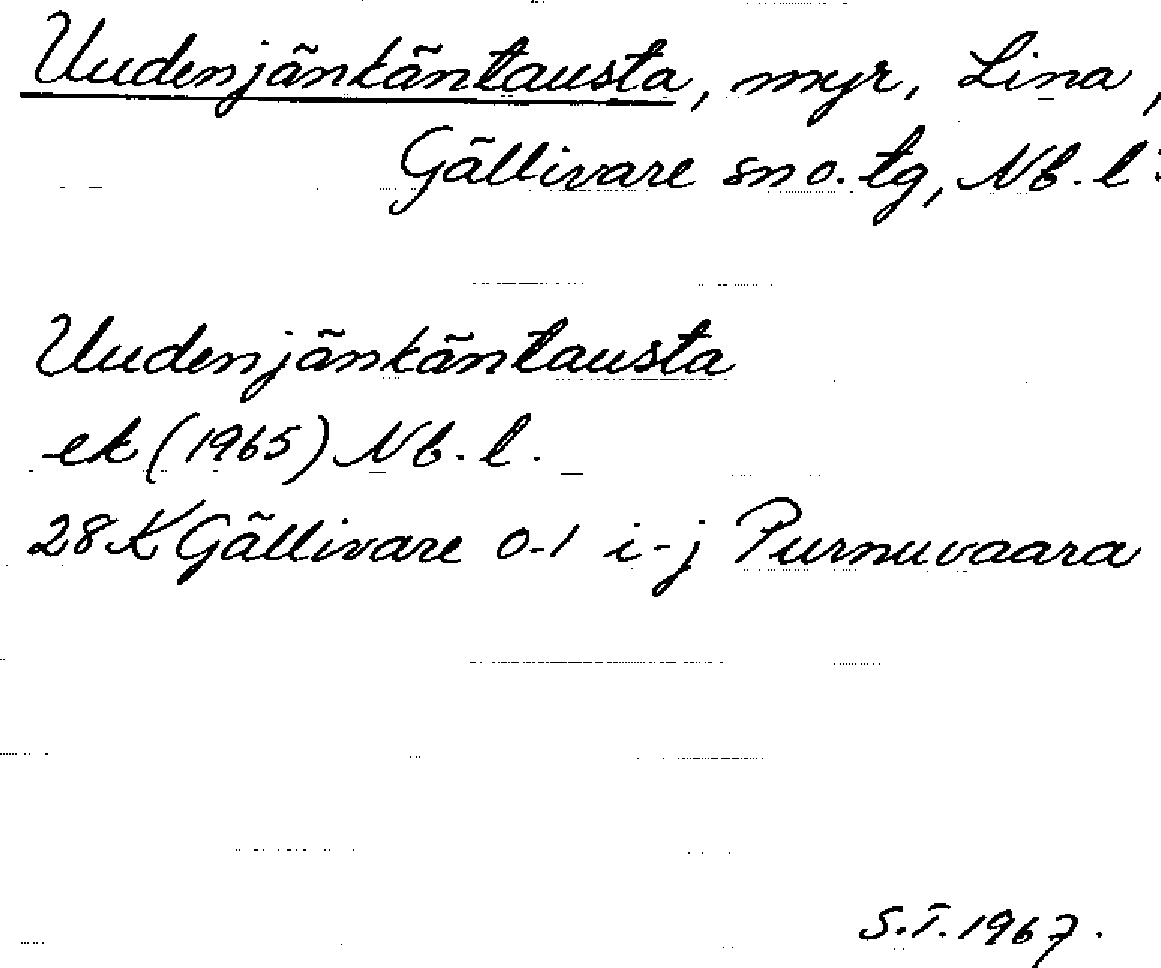 Uudenjänkäntausta, myr, Lina,
Gällivare sn o. tg, Nb. l.
Uudenjänkäntausta
ek (1965) Nb. l.
28 K Gällivare 0-1 i-j Purnuvaara
S.T. 1967.